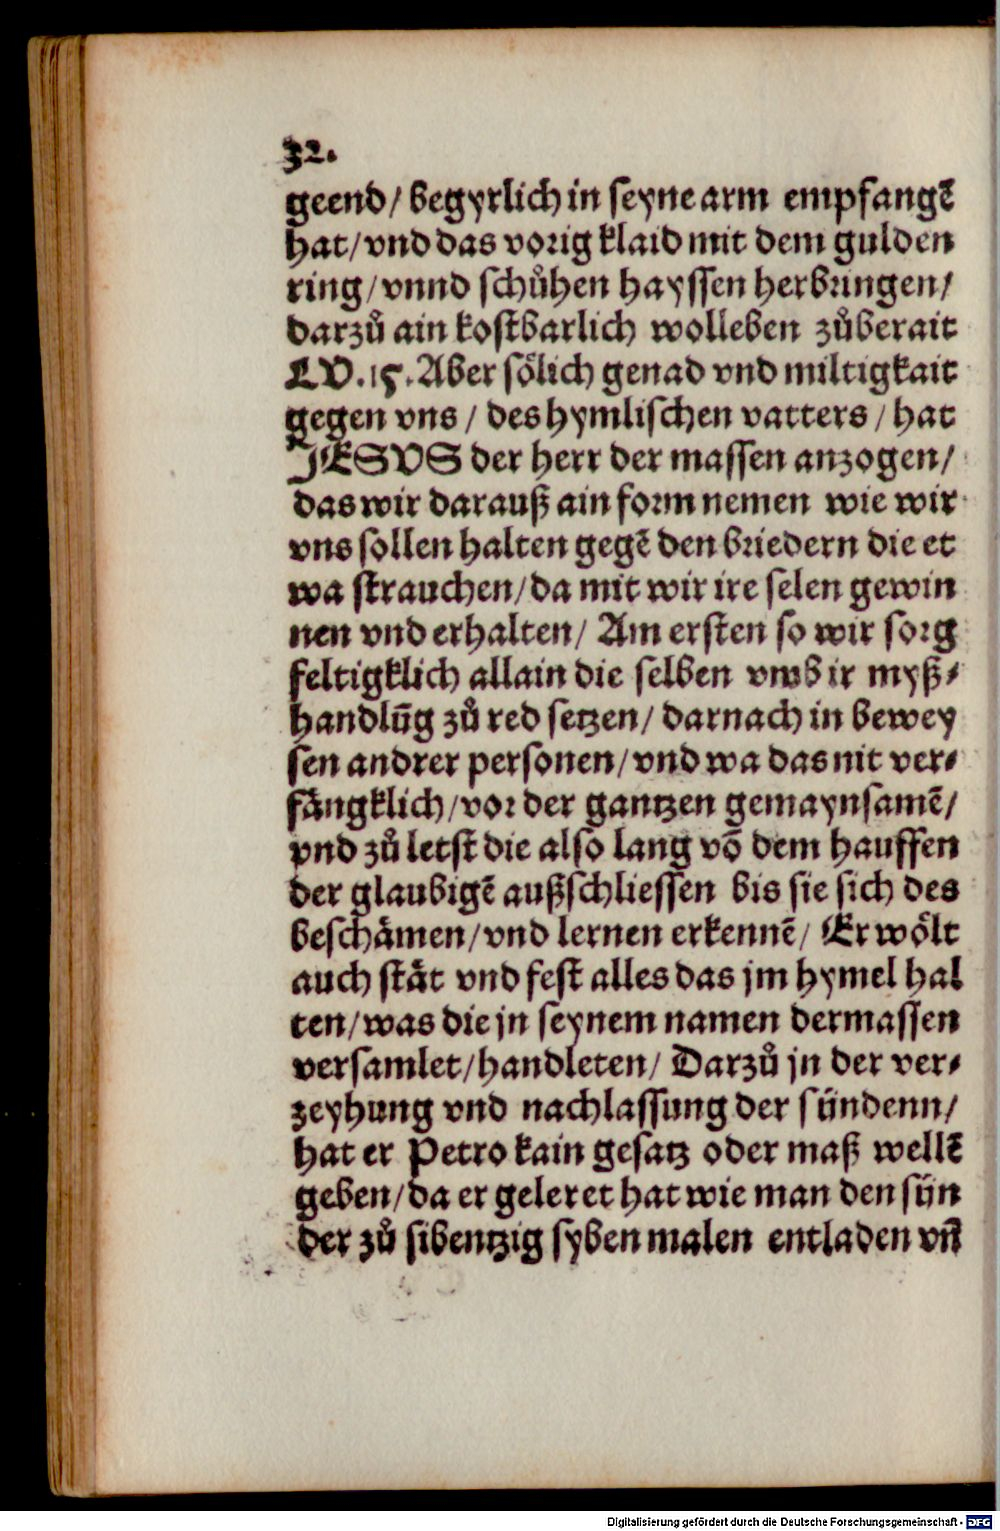 32.
geend/ begyrlich in seyne arm empfangē
hat/ vnd das vorig klaid mit dem gulden
ring/ vnnd schůhen hayssen herbringen/
darzů ain kostbarlich wolleben zůberait
LV.15. Aber soͤlich genad vnd miltigkait
gegen vns/ des hymlischen vatters/ hat
JESVS der herr der massen anzogen/
das wir darauß ain form nemen wie wir
vns sollen halten gegē den briedern die et
wa strauchen/ da mit wir ire selen gewin
nen vnd erhalten/ Am ersten so wir sorg
feltigklich allain die selben vmb ir myß⸗
handlūg zů red setzen/ darnach in bewey
sen andrer personen/ vnd wa das nit ver⸗
fāngklich/ vor der gantzen gemaynsamē/
vnd zů letst die also lang vō dem hauffen
der glaubigē außschliessen bis sie sich des
beschaͤmen/ vnd lernen erkennē/ Er woͤlt
auch staͤt vnd fest alles das jm hymel hal
ten/ was die jn seynem namen dermassen
versamlet/ handleten/ Darzů jn der ver⸗
zeyhung vnd nachlassung der sündenn/
hat er Petro kain gesatz oder maß wellē
geben/ da er geleret hat wie man den sün
der zů sibentzig syben malen entladen vn̄
Digitalisierung gefördert durch die Deutsche Forschungsgemeinschaft - DFG